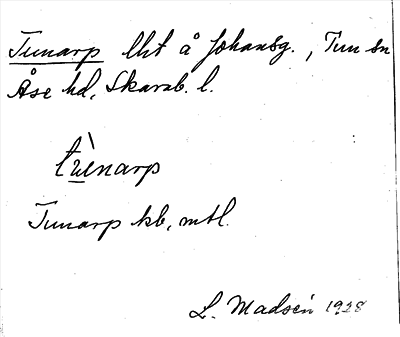 Tunarp lht å Johansg., Tun sn
Åse hd, Skarab. l.
tùnarp
Tunarp kb, mtl.
L. Madsén 1928